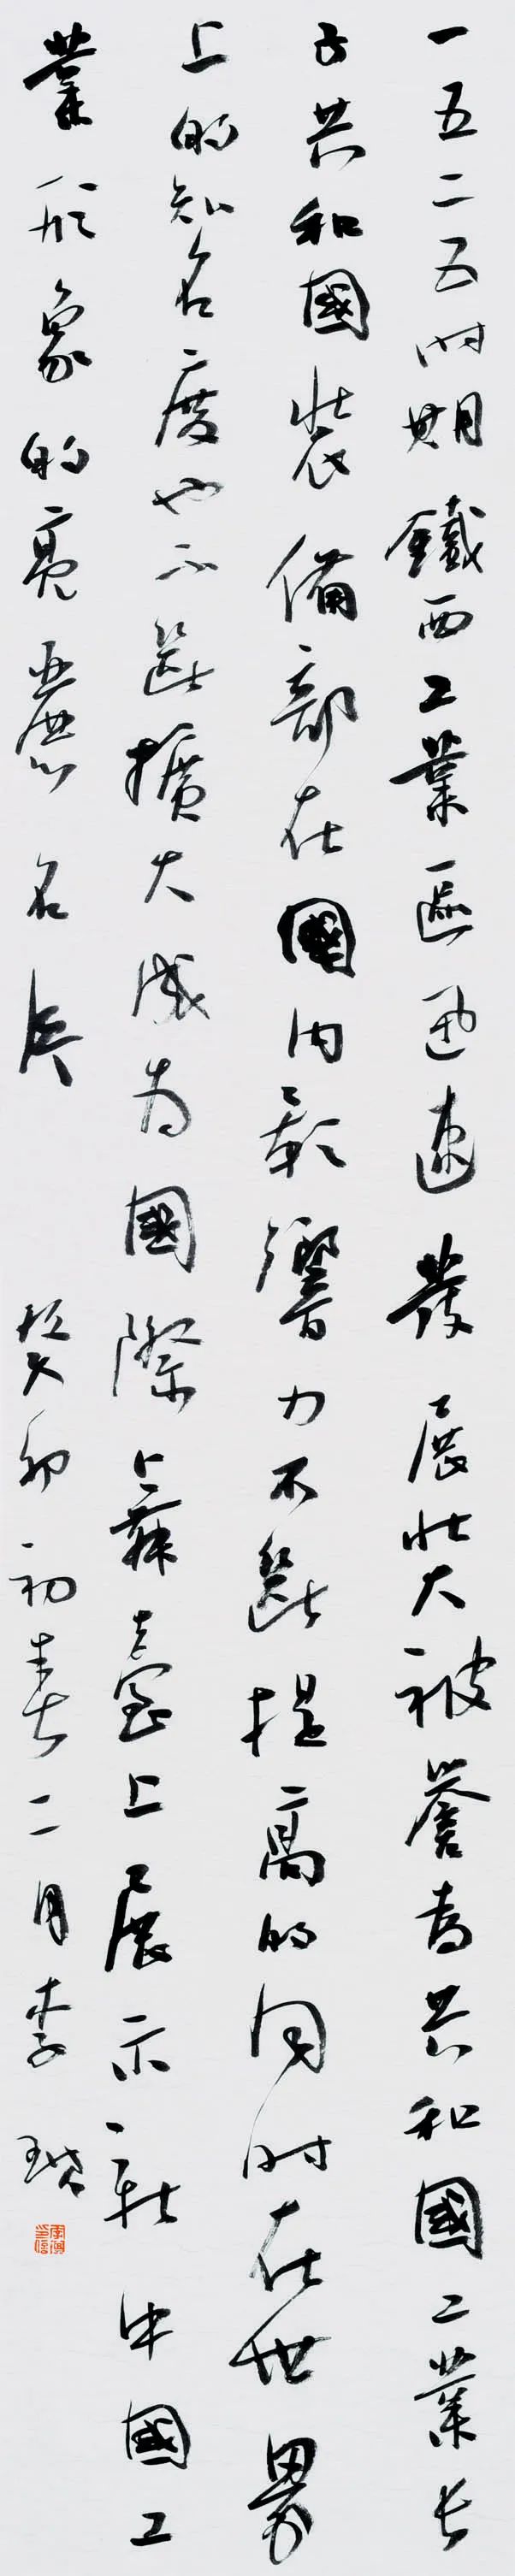 一五二五时期鐵西工業區迅速發展壯大被譽為共和國工業长
子共和國裝備部在國内影響力不斷提高的同时在世界
上的知名度也不斷擴大成为國際上舞臺上展示新中國工
業形象的亮麗名片
癸卯初春二月李